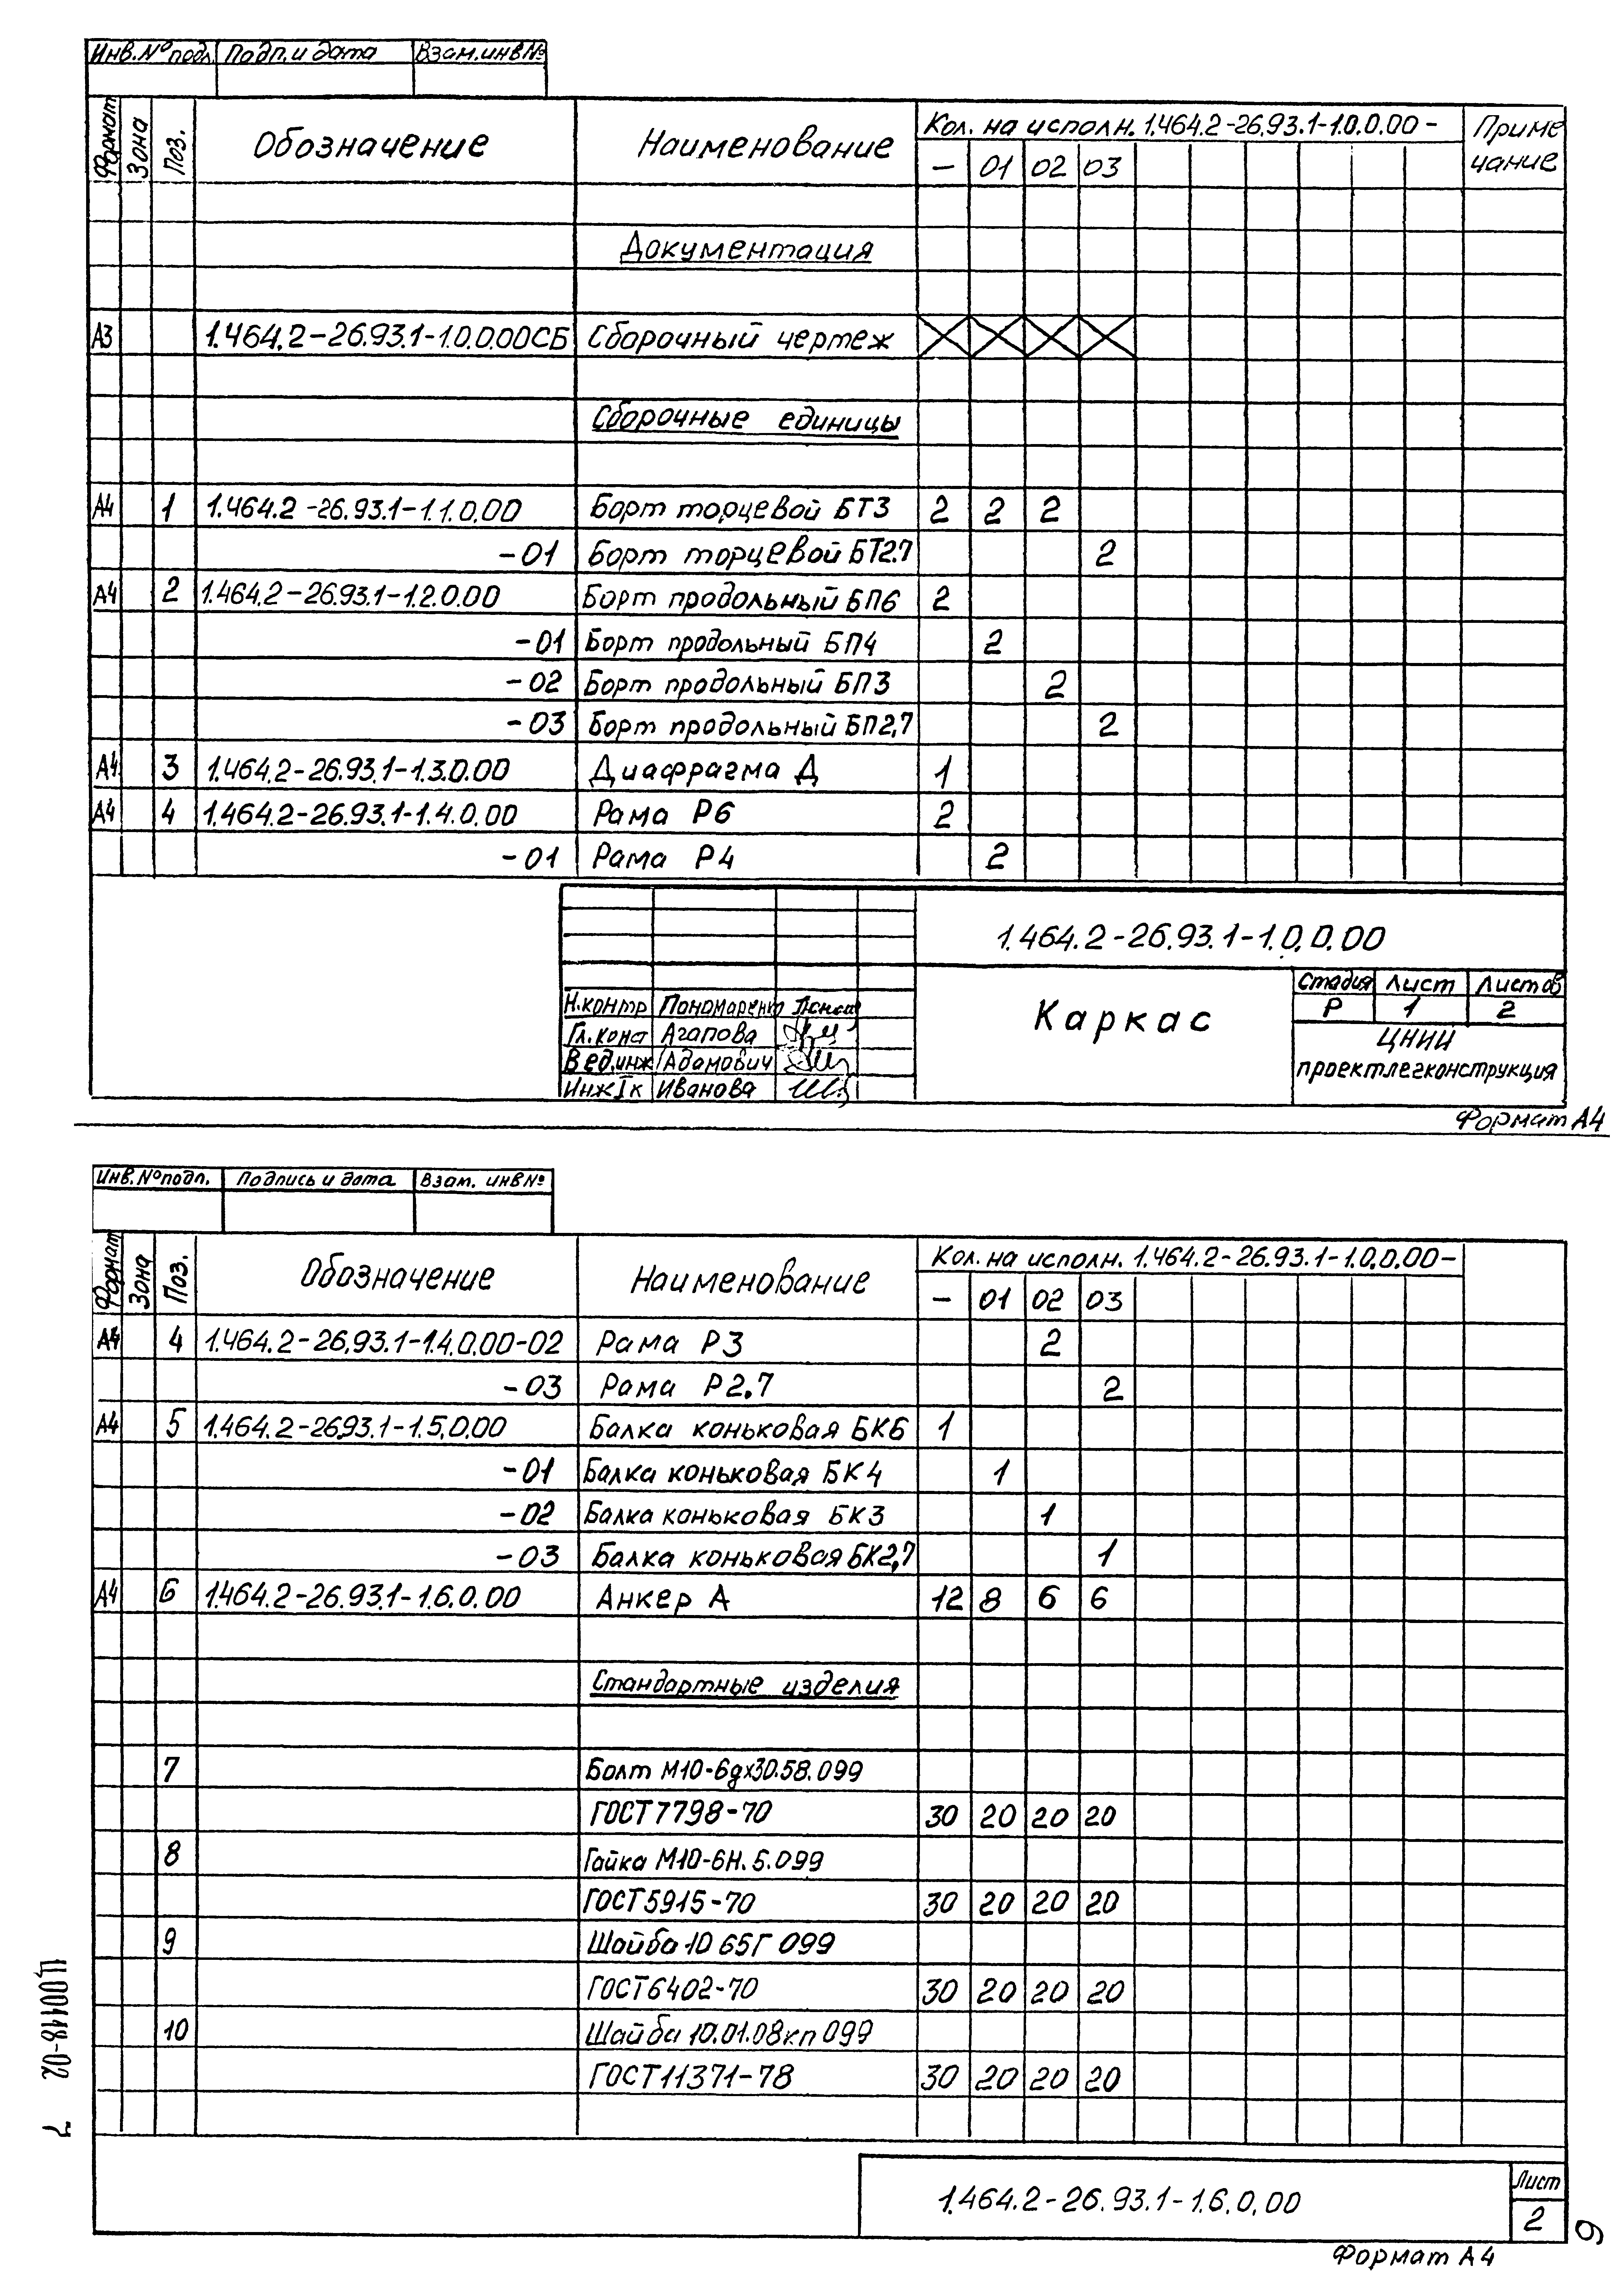 Инв.№ подл. Подп. и дата Взам.инв№
Формат Зона Поз. Обозначение Наименование Кол. на исполн. 1.464.2-26.93.1-1.0.0.00- Приме
— 01 02 03 чание
Документация
А3 1.464.2-26.93.1-1.0.0.00СБ Сборочный чертеж
Сборочные единицы
А4 1 1.464.2-26.93.1-1.1.0.00 Борт торцевой БТ3 2 2 2
-01 Борт торцевой БТ2.7 2
А4 2 1.464.2-26.93.1-1.2.0.00 Борт продольный БП6 2
-01 Борт продольный БП4 2
-02 Борт продольный БП3 2
-03 Борт продольный БП2,7 2
А4 3 1.464.2-26.93.1-1.3.0.00 Диафрагма Д 1
А4 4 1.464.2-26.93.1-1.4.0.00 Рама Р6 2
-01 Рама Р4 2
1.464.2-26.93.1-1.0.0.00
Каркас
Стадия Лист Листов
Р 1 2
Н.контр Пономаренк
Гл.конс Агапова
Вед.инж Адамович
Инж Iк Иванова
ЦНИИ
проектлегконструкция
Формат А4
Инв.№ подл. Подпись и дата Взам. инв№
Формат Зона Поз. Обозначение Наименование Кол. на исполн. 1.464.2-26.93.1-1.0.0.00-
— 01 02 03
А4 4 1.464.2-26.93.1-1.4.0.00-02 Рама Р3 2
-03 Рама Р2.7 2
А4 5 1.464.2-26.93.1-1.5.0.00 Балка коньковая БК6 1
-01 Балка коньковая БК4 1
-02 Балка коньковая БК3 1
-03 Балка коньковая БК2,7 1
А4 6 1.464.2-26.93.1-1.6.0.00 Анкер А 12 8 6 6
Стандартные изделия
7 Болт М10-6gх30.58.099
ГОСТ7798-70 30 20 20 20
8 Гайка М10-6Н.5.099
ГОСТ5915-70 30 20 20 20
9 Шайба 10 65Г 099
ГОСТ6402-70 30 20 20 20
10 Шайба 10.01.08кп 099
ГОСТ11371-78 30 20 20 20
1.464.2-26.93.1-1.6.0.00
Лист
2
Формат А4
Ц00148-02 7
6